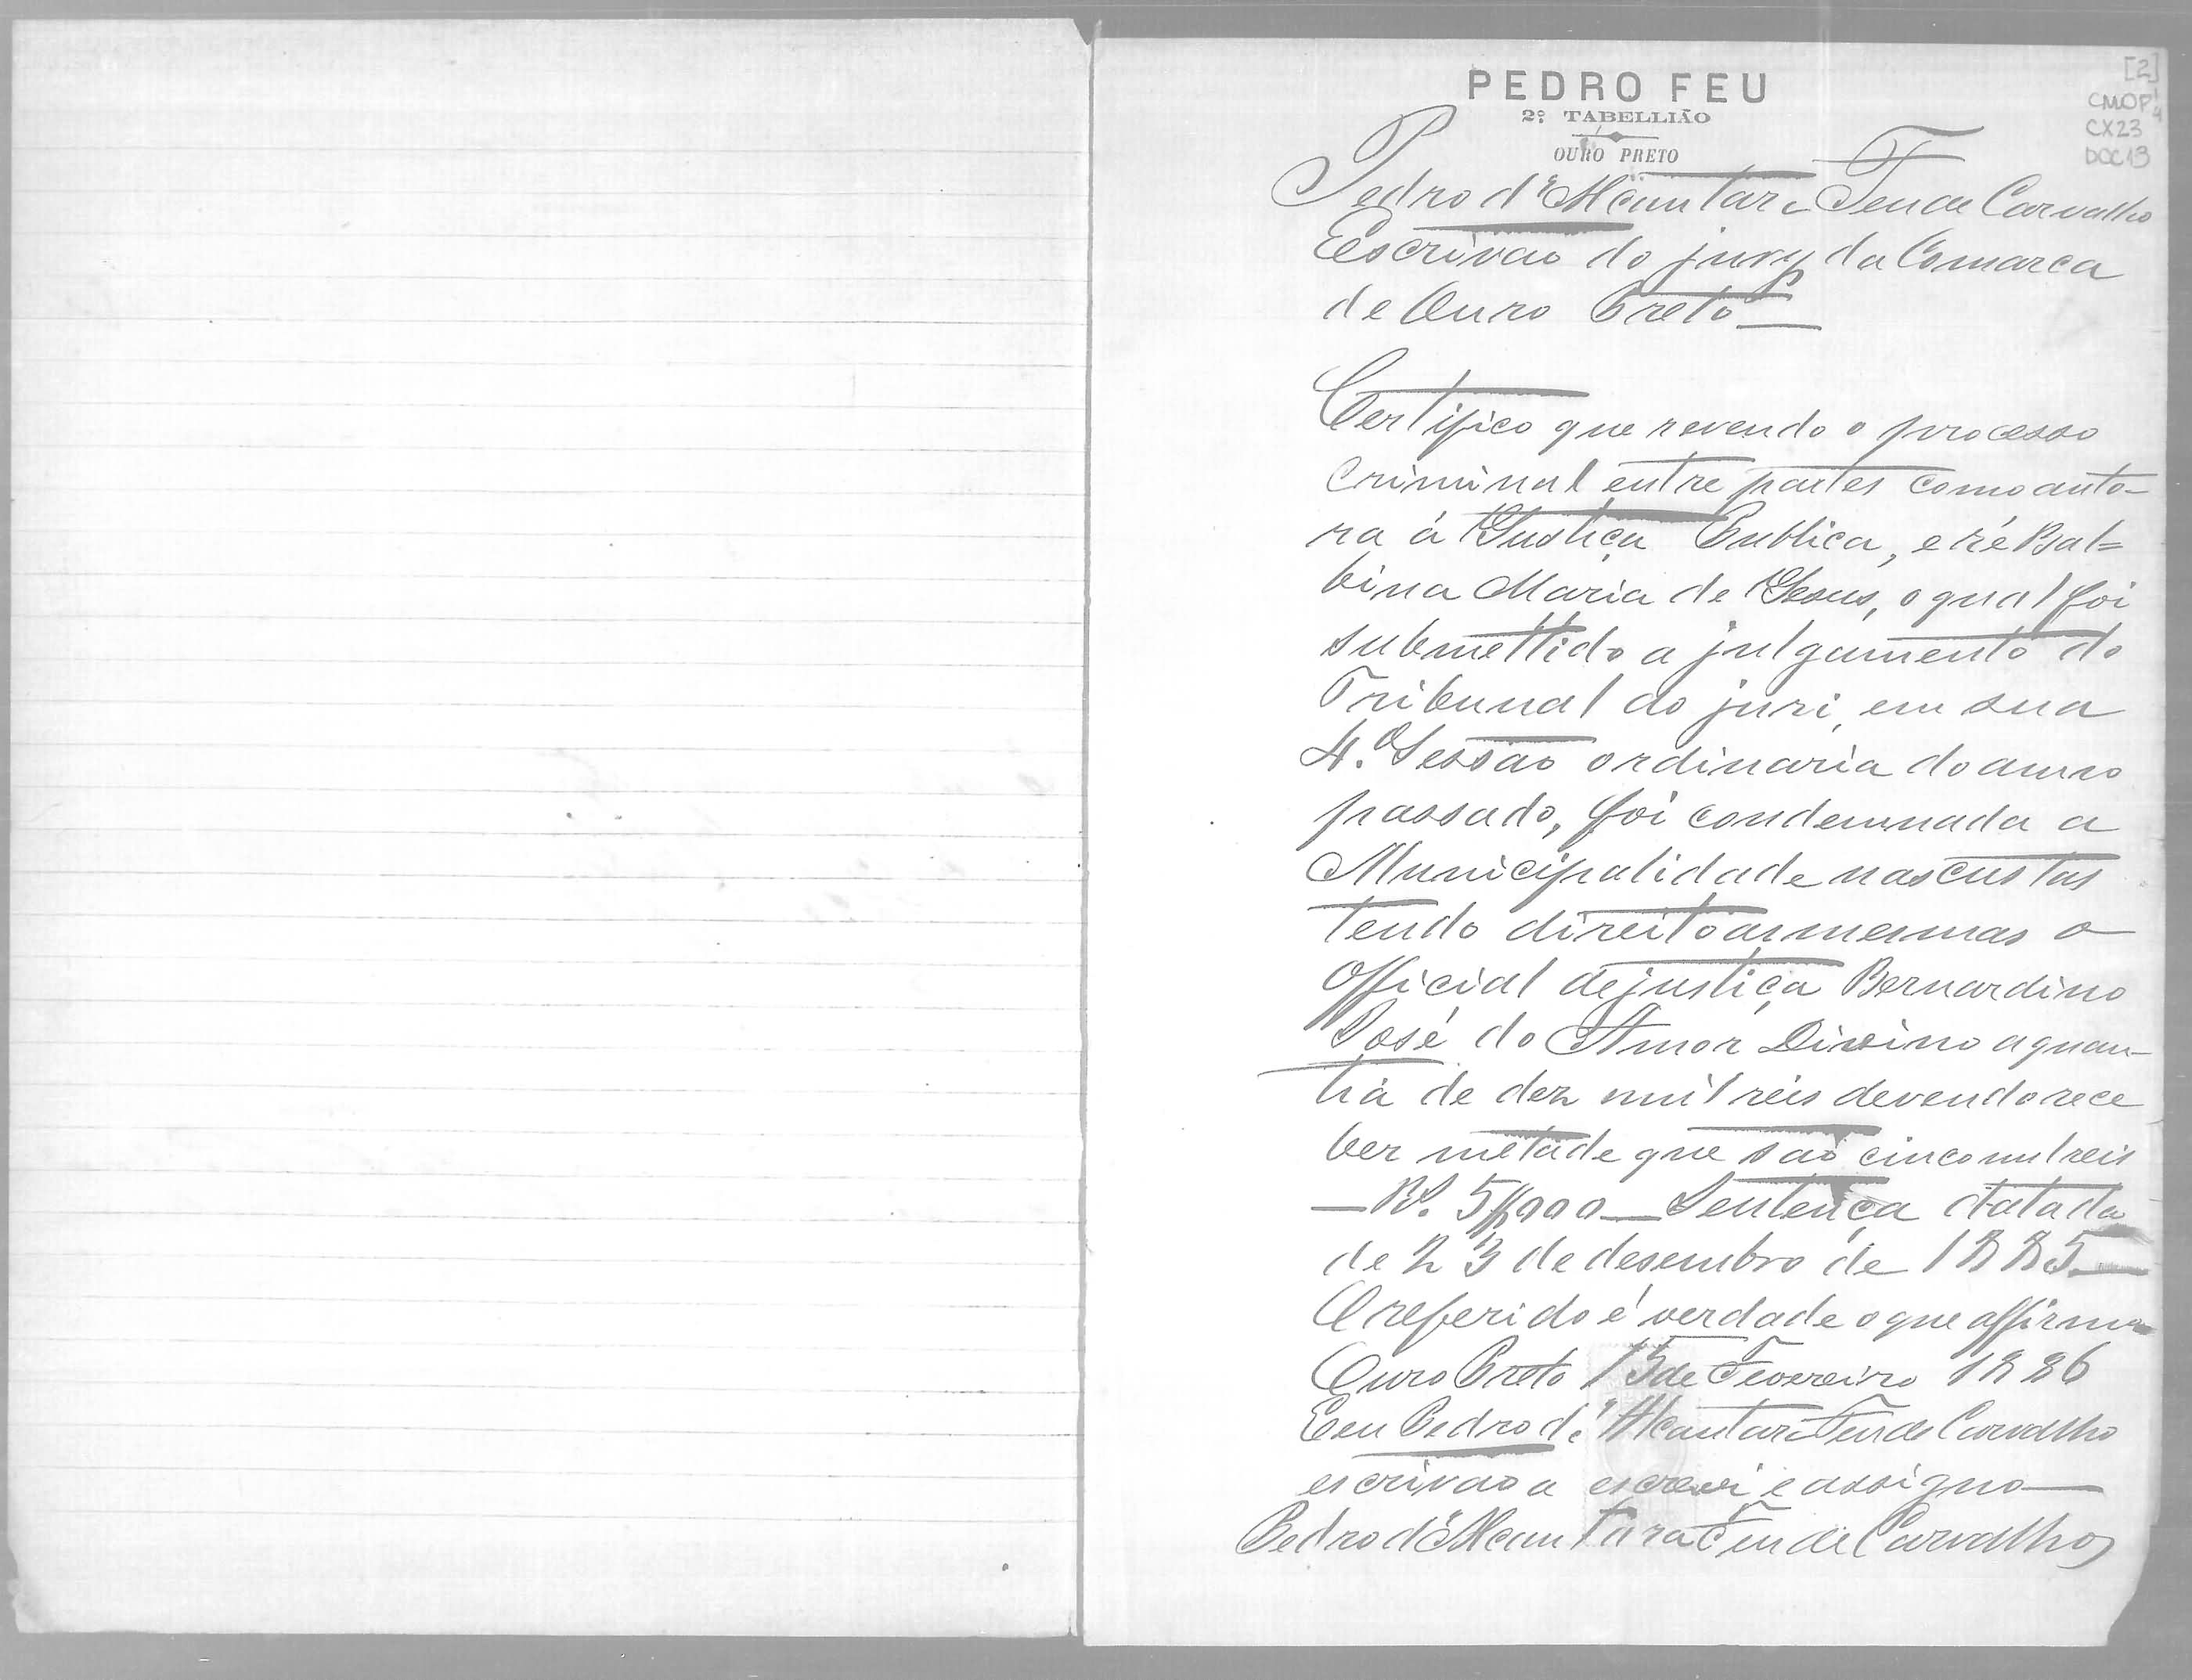 PEDRO FEU
2º TABELLIÃO
OURO PRETO
[2]
CMOP
CX23
DOC 13
Pedro d'Alcantara Feu de Carvalho
Escrivão do jury da Comarca
de Ouro Preto—
Certifico que revendo o processo
criminal entre partes como auto-
ra á Justiça Publica, e ré Bal=
bina Maria de Jesus, o qual foi
submettido a julgamento do
Tribunal do juri, em sua
4.ª Sessão ordinaria do anno
passado, foi condemnada a
Municipalidade nas custas
tendo direito as mesmas o
Official de justiça Bernardino
José do Amor Divino a quan-
tia de dez mil réis devendo rece
ber metade que são cinco mil reis
— Rs. 5$000 — Sentença datada
de 23 de desembro de 1885—
O referido é verdade o que affirmo
Ouro Preto 15 de Fevereiro 1886
Eeu Pedro d'Alcantara Feu de Carvalho
escrivão a escrevi e assigno—
Pedro d'Alcantara Feu de Carvalho